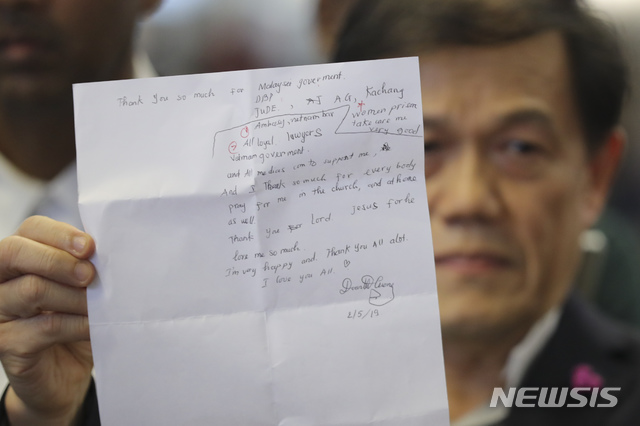 Thank you so much for Malaysian goverment.
DPP
JUDE, AG, Kachang
women prison
① Ambassy,
take care me
very good
② All legal lawyers
Vatnam goverment.
and All medias com to support me,
And I Thank so much for every body
pray for me in the church, and at home
as well
Thank you Lord Jesus for he
love me so much.
I'm very happy and. Thank you All alot.
I love you All.
Doan
2/5/19
NEWSIS